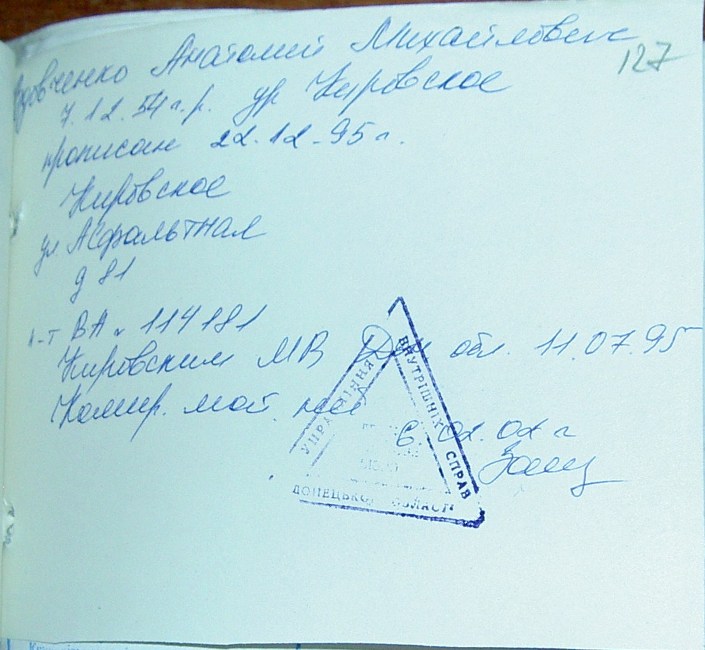 127
Анатолий Михайлович
7.12.54 г.р. ур Кировское
прописан 22.12.95 г.
Кировское
ул Асфальтная
д 81
п-т ВА № 114181
Кировским МВ Дон обл. 11.07.95
6.02.02 г
УПРАВЛІННЯ
ВНУТРІШНІХ СПРАВ
ДОНЕЦЬКОЇ ОБЛАСТІ